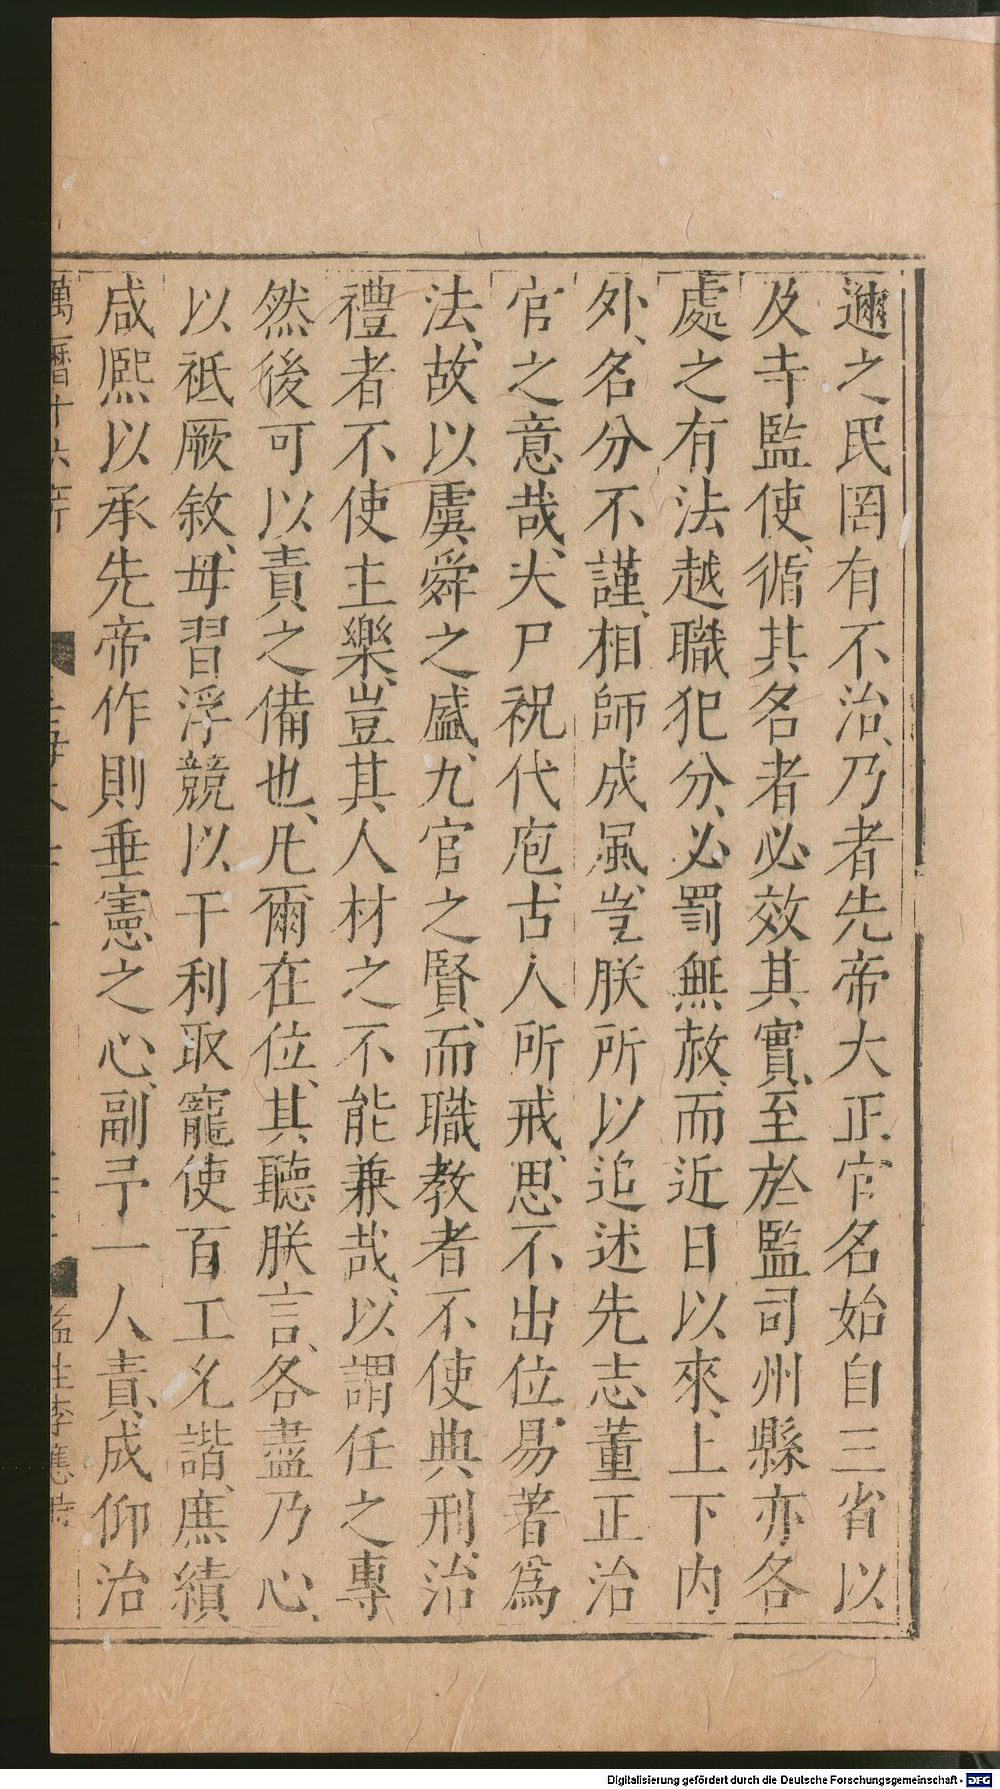 邇之民罔有不治、乃者先帝大正官名始自三省以
及寺監使、循其名者必效其實、至於監司州縣亦各
處之有法越職犯分、必罰無赦、而近日以來、上下內
外、名分不謹、相師成風、豈朕所以追述先志董正治
官之意哉、夫尸祝代庖、古人所戒、思不出位、易著爲
法、故以虞舜之盛、九官之賢、而職教者不使典刑、治
禮者不使主樂、豈其人材之不能兼哉、以謂任之專
然後可以責之備也、凡爾在位、其聽朕言、各盡乃心、
以祗厥敘、毋習浮競以干利取寵使百工允諧、庶績
咸熙以承先帝作則垂憲之心、副予一人責成仰治
萬曆十六年
監生李應時
Digitalisierung gefördert durch die Deutsche Forschungsgemeinschaft - DFG